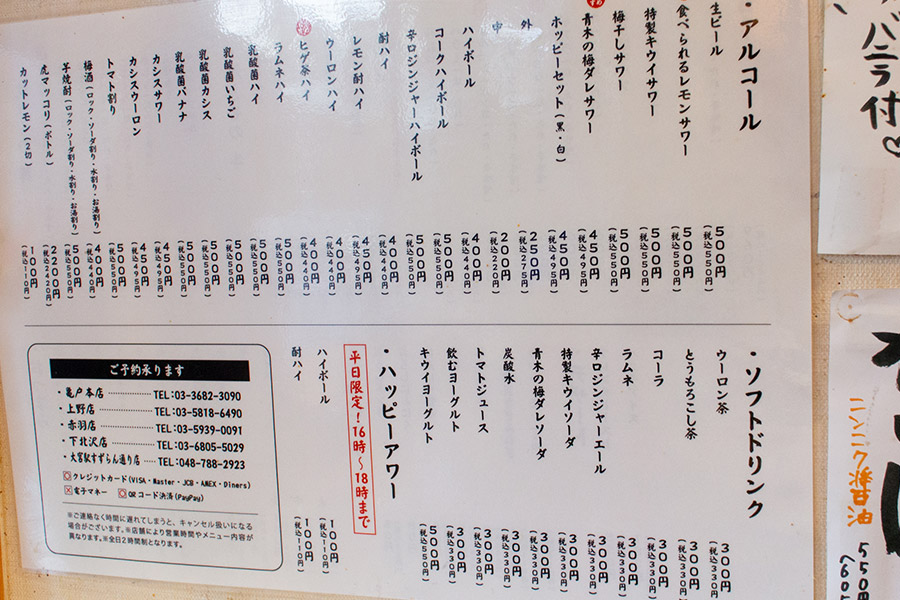 ・アルコール
生ビール 500円(税込550円)
食べられるレモンサワー 500円(税込550円)
特製キウイサワー 500円(税込550円)
梅干しサワー 500円(税込550円)
青木の梅ダレサワー 450円(税込495円)
ホッピーセット(黒・白) 450円(税込495円)
外 250円(税込275円)
中 200円(税込220円)
ハイボール 400円(税込440円)
コークハイボール 500円(税込550円)
辛口ジンジャーハイボール 500円(税込550円)
酎ハイ 400円(税込440円)
レモン酎ハイ 450円(税込495円)
ウーロンハイ 400円(税込440円)
ヒゲ茶ハイ 400円(税込440円)
ラムネハイ 500円(税込550円)
乳酸菌ハイ 500円(税込550円)
乳酸菌いちご 500円(税込550円)
乳酸菌カシス 500円(税込550円)
乳酸菌バナナ 500円(税込550円)
カシスサワー 450円(税込495円)
カシスウーロン 450円(税込495円)
トマト割り 500円(税込550円)
梅酒(ロック・ソーダ割り・水割り・お湯割り) 400円(税込440円)
芋焼酎(ロック・ソーダ割り・水割り・お湯割り) 500円(税込550円)
虎マッコリ(ボトル) 2200円(税込2420円)
カットレモン(2切) 100円(税込110円)
・ソフトドリンク
ウーロン茶 300円(税込330円)
とうもろこし茶 300円(税込330円)
コーラ 300円(税込330円)
ラムネ 300円(税込330円)
辛口ジンジャーエール 300円(税込330円)
特製キウイソーダ 300円(税込330円)
青木の梅ダレソーダ 300円(税込330円)
炭酸水 300円(税込330円)
トマトジュース 300円(税込330円)
飲むヨーグルト 300円(税込330円)
キウイヨーグルト 500円(税込550円)
・ハッピーアワー
平日限定!16時〜18時まで
ハイボール 100円(税込110円)
酎ハイ 100円(税込110円)
ご予約承ります
・亀戸本店 ……… TEL:03-3682-3090
・上野店 ……… TEL:03-5818-6490
・赤羽店 ……… TEL:03-5939-0091
・下北沢店 ……… TEL:03-6805-5029
・大宮駅すずらん通り店 …… TEL:048-788-2923
クレジットカード(VISA・Master・JCB・AMEX・Diners)
電子マネー QRコード決済(PayPay)
※ご連絡なく時間に遅れてしまうと、キャンセル扱いになる
場合がございます。※店舗により営業時間やメニュー内容が
異なります。※全日2時間制となります。
バニラ付♡